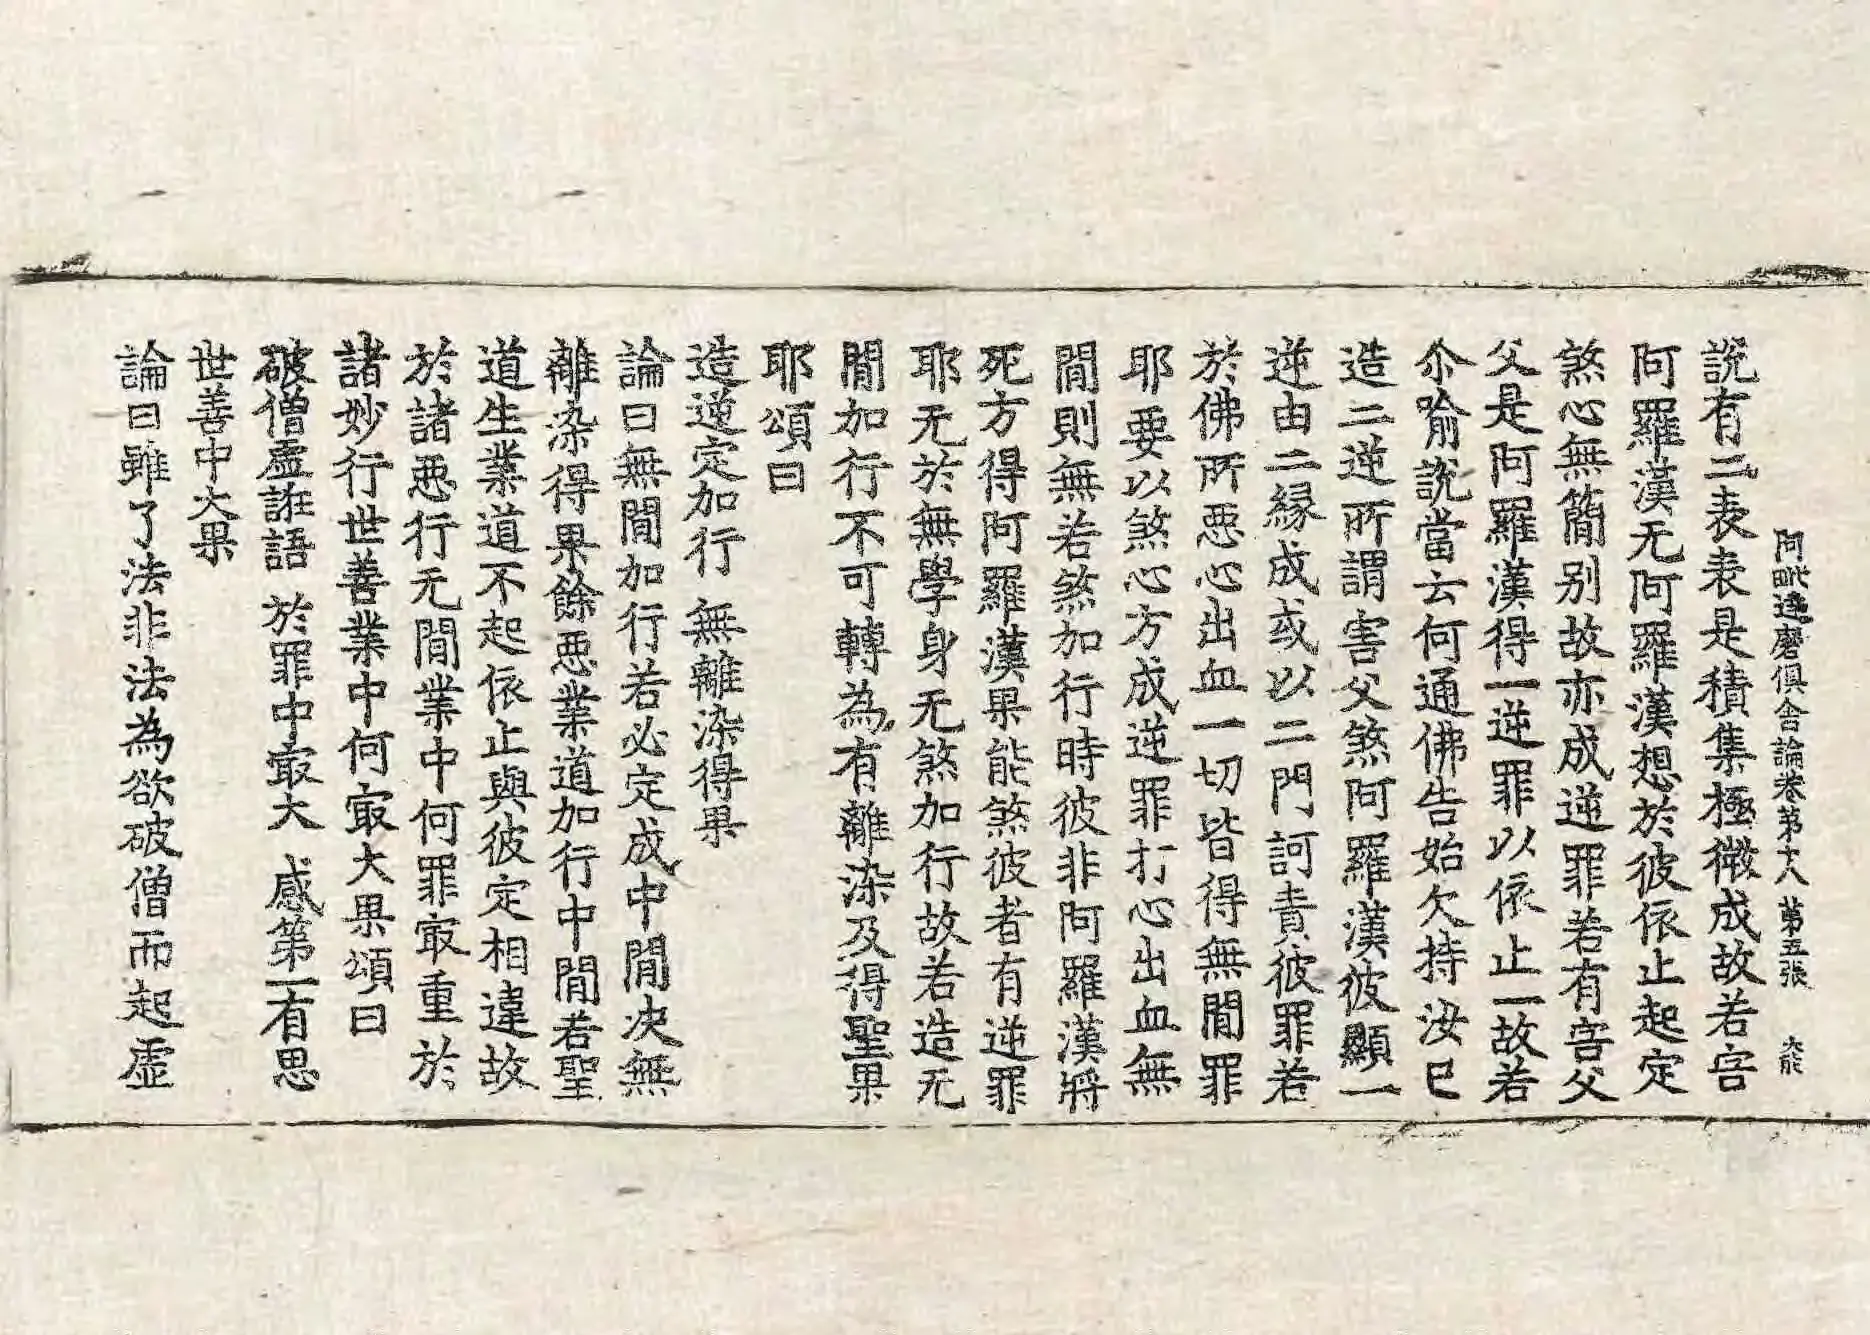 阿毗達磨俱舍論卷第十八 第五張 大能
說有二表表是積集極微成故若害
阿羅漢无阿羅漢想於彼依止起定
煞心無簡別故亦成逆罪若有害父
父是阿羅漢得一逆罪以依止一故若
尒喻說當云何通佛告始欠持汝已
造二逆所謂害父煞阿羅漢彼顯一
逆由二緣成或以二門訶責彼罪若
於佛所惡心出血一切皆得無間罪
耶要以煞心方成逆罪打心出血無
間則無若煞加行時彼非阿羅漢將
死方得阿羅漢果能煞彼者有逆罪
耶无於無學身无煞加行故若造无
間加行不可轉為有離染及得聖果
耶頌曰
造逆定加行 無離染得果
論曰無間加行若必定成中間决無
離染得果餘惡業道加行中間若聖
道生業道不起依止與彼定相違故
於諸惡行无間業中何罪㝡重於
諸妙行世善業中何㝡大果頌曰
破僧虛誑語 於罪中㝡大 感第一有思
世善中大果
論曰雖了法非法為欲破僧而起虛